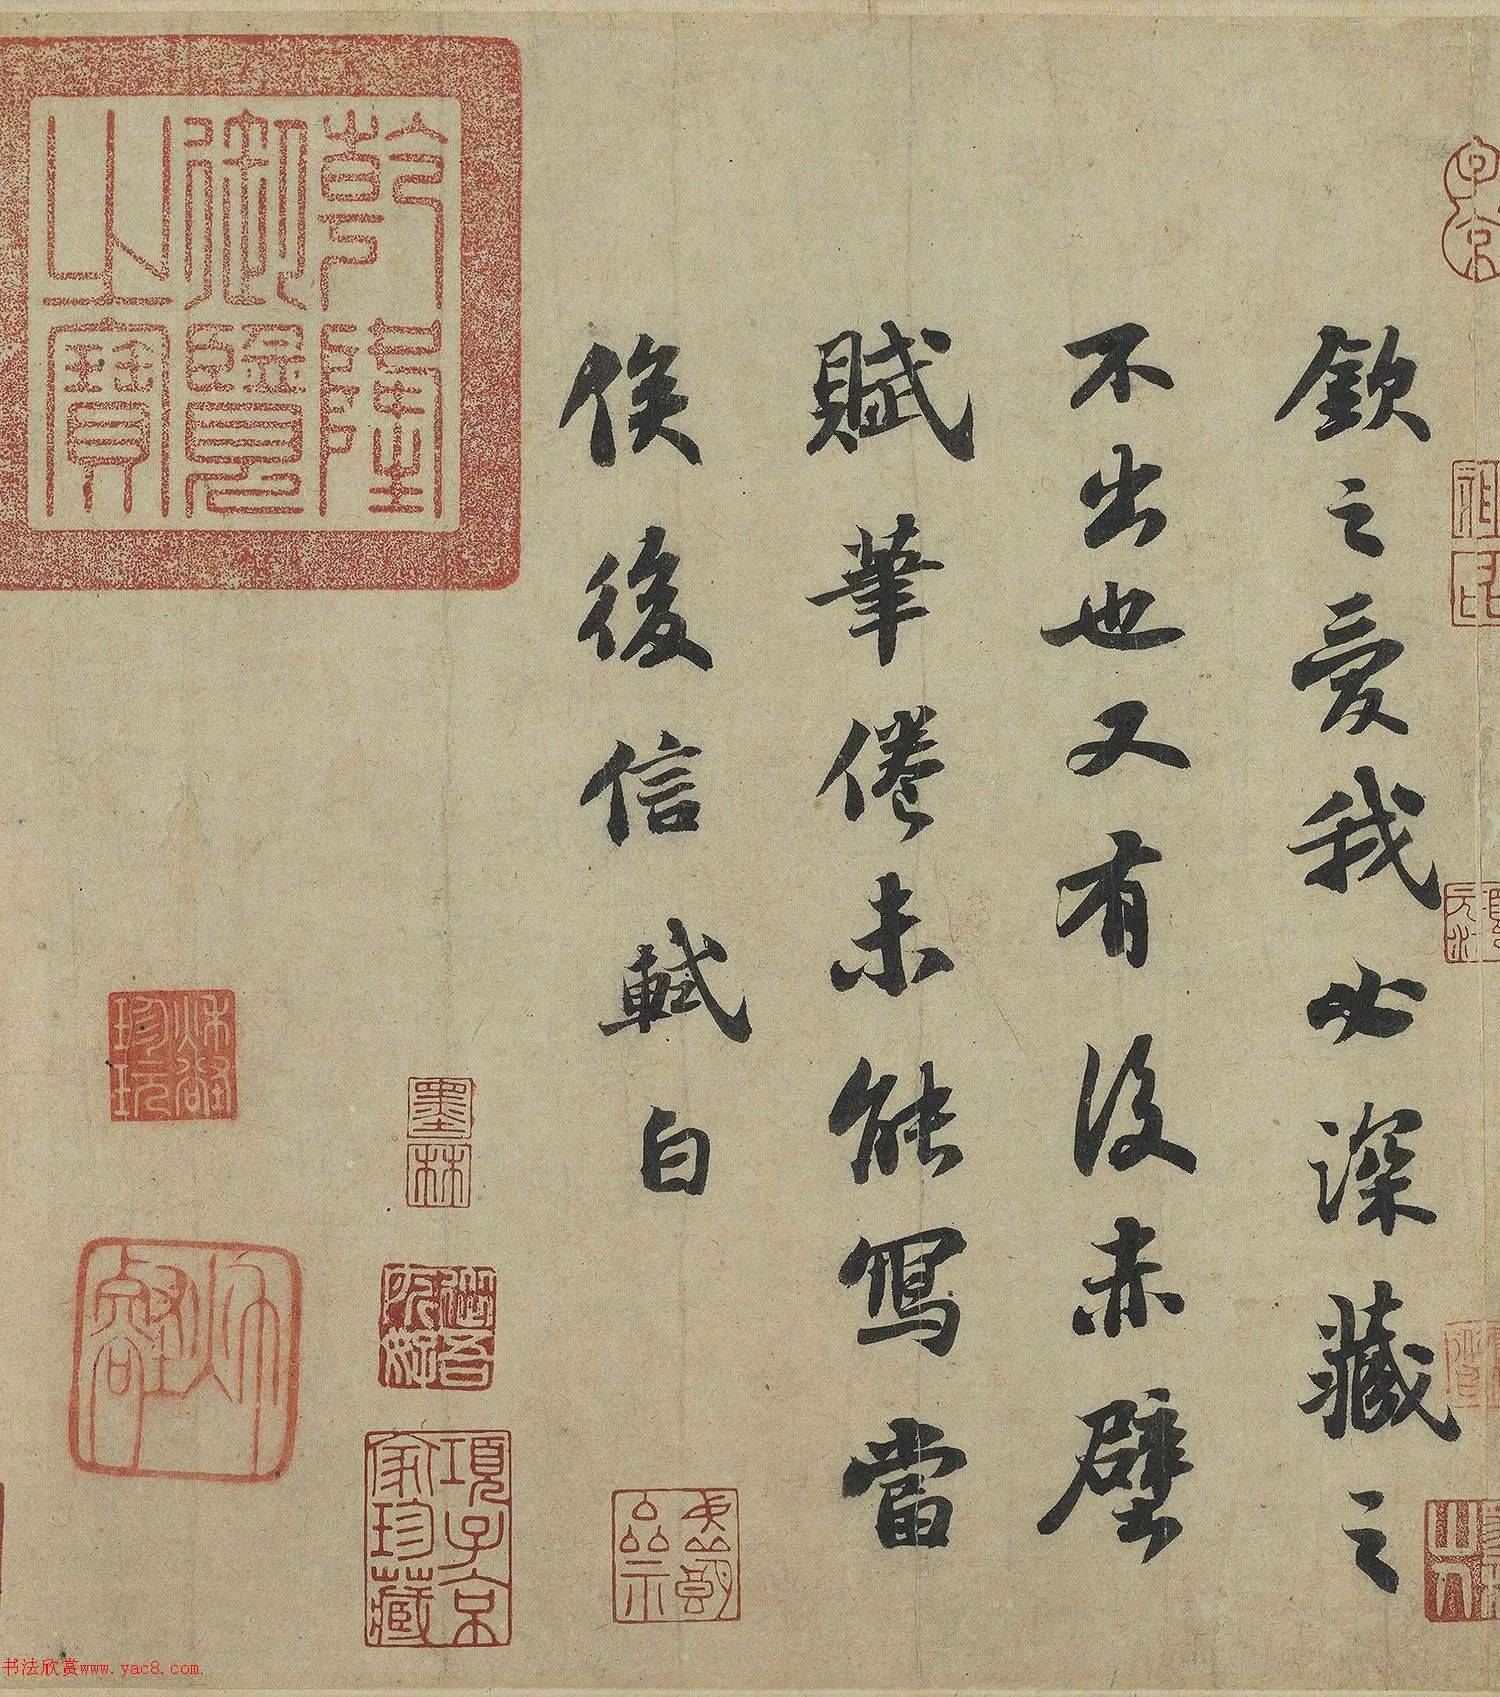 欽之愛我必深藏之
不出也又有後赤壁
賦筆倦未能寫當
俟後信軾白
乾隆
御覽
之寶
子京
墨林
項子京
家珍藏
珍玩
書法欣赏www.yac8.com